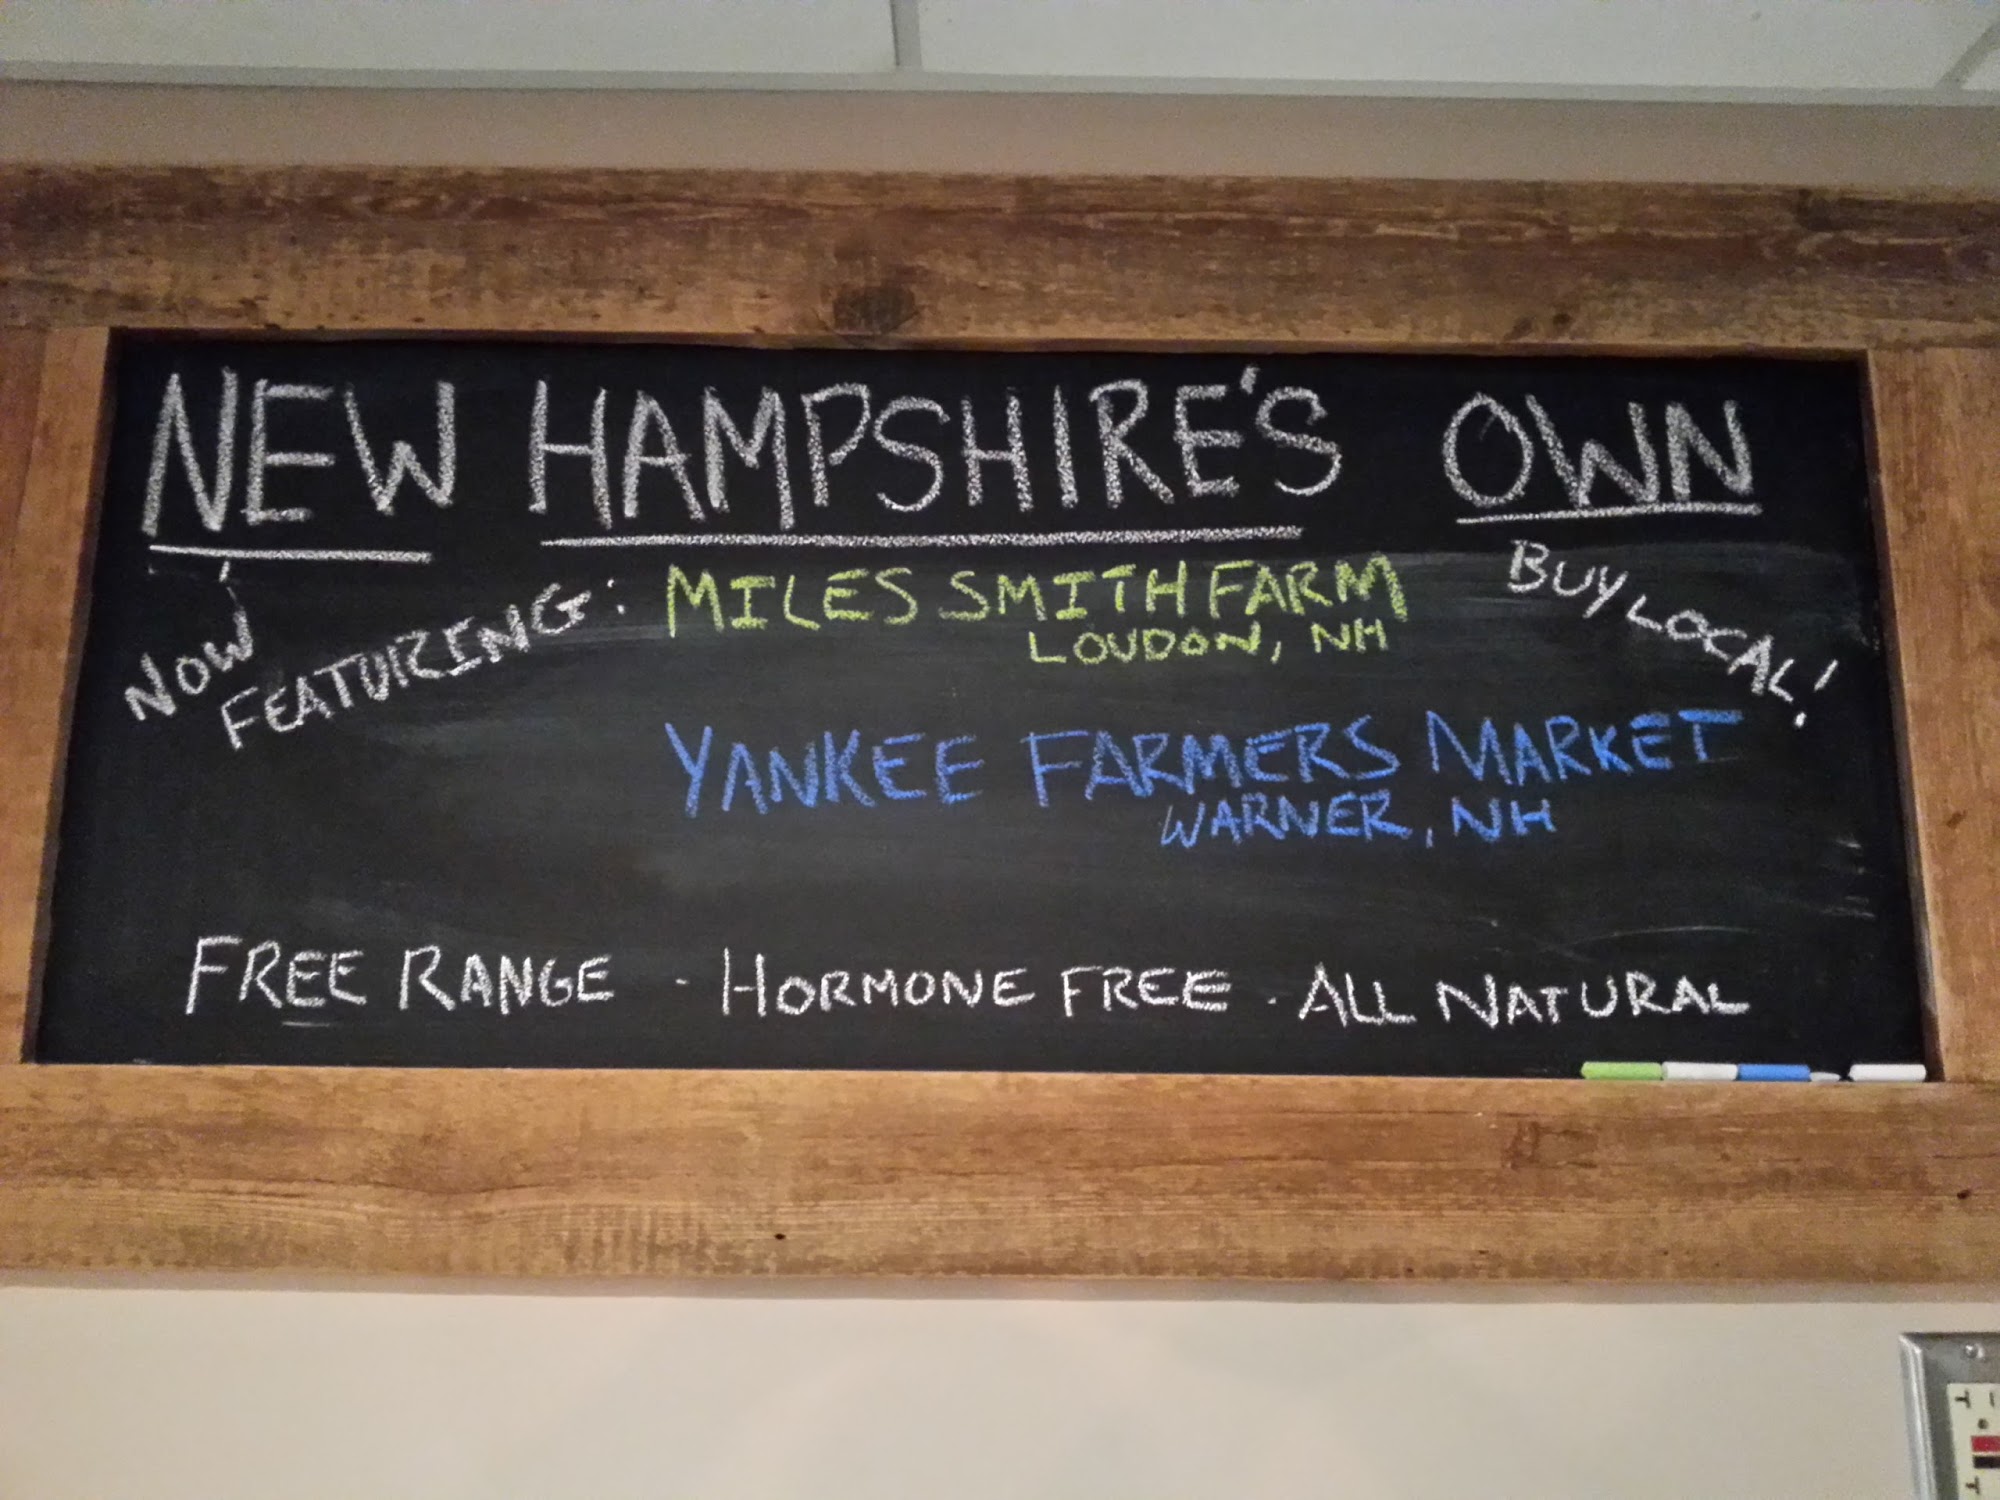 NEW HAMPSHIRE'S OWN
NOW
FEATURING:
MILES SMITH FARM
LOUDON, NH
BUY LOCAL!
YANKEE FARMERS MARKET
WARNER, NH
FREE RANGE · HORMONE FREE · ALL NATURAL